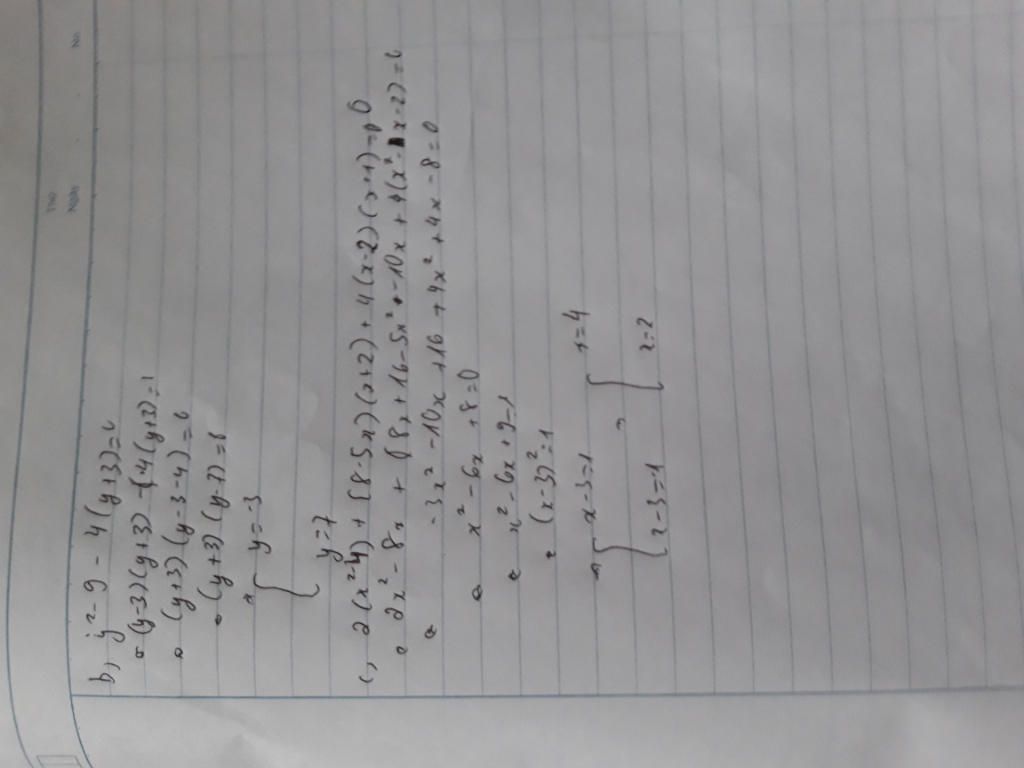 b, y² - 9 - 4(y+3)=0
(y-3)(y+3) - 4(y+3)=
(y+3)(y-3-4)=0
(y+3)(y-7)=0
y=-3
y=7
c, 2(x²-4) + (8-5x)(x+2) + 4(x-2)(x+1)=0
2x² - 8x + (8x + 16 - 5x² - 10x + 4(x² - x - 2)=0
-3x² - 10x + 16 + 4x² + 4x - 8=0
x² - 6x + 8=0
x² - 6x + 9=1
(x-3)²=1
x-3=1 x=4
x-3=1 x=2